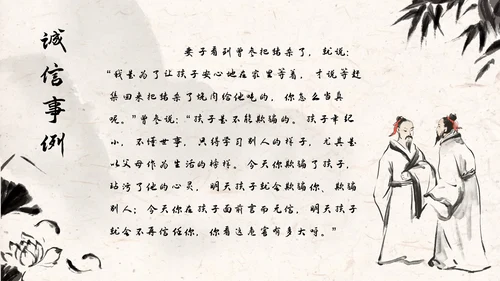 诚信事例
妻子看到曾参把猪杀了，就说：
“我是为了让孩子安心地在家里等着，才说等赶
集回来把猪杀了烧肉给他吃的，你怎么当真
呢。”曾参说：“孩子是不能欺骗的。孩子年纪
小，不懂世事，只得学习别人的样子，尤其是
以父母作为生活的榜样。今天你欺骗了孩子，
玷污了他的心灵，明天孩子就会欺骗你、欺骗
别人；今天你在孩子面前言而无信，明天孩子
就会不再信任你，你看这危害有多大呀。”